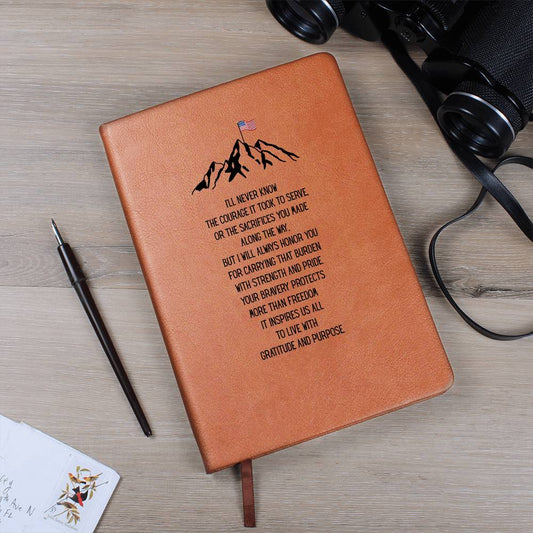 I'LL NEVER KNOW
THE COURAGE IT TOOK TO SERVE.
OR THE SACRIFICES YOU MADE
ALONG THE WAY.
BUT I WILL ALWAYS HONOR YOU
FOR CARRYING THAT BURDEN
WITH STRENGTH AND PRIDE.
YOUR BRAVERY PROTECTS
MORE THAN FREEDOM
IT INSPIRES US ALL
TO LIVE WITH
GRATITUDE AND PURPOSE